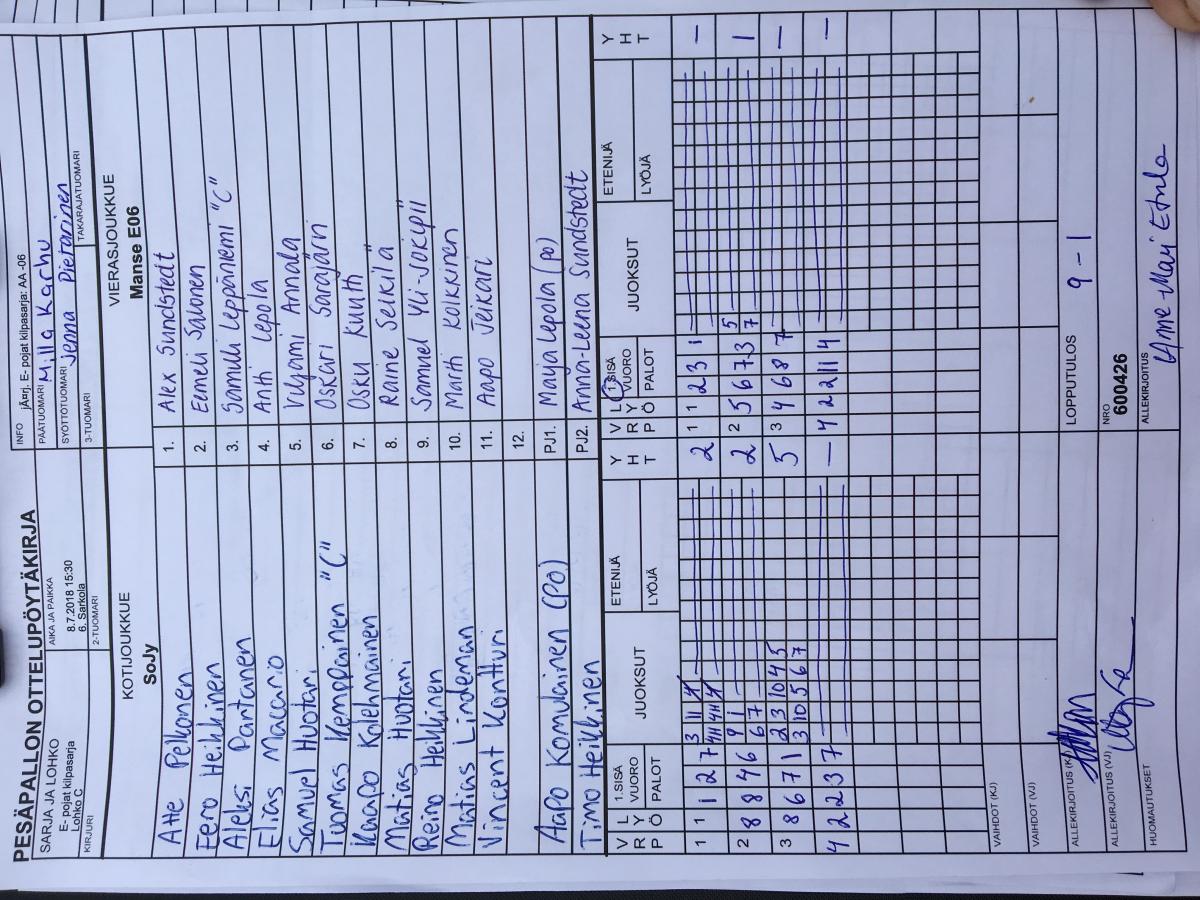 PESÄPALLON OTTELUPÖYTÄKIRJA
SARJA JA LOHKO
E- pojat kilpasarja
Lohko C
AIKA JA PAIKKA
8.7.2018 15:30
6. Sarkola
INFO
jÄ¤rj. E- pojat kilpasarja: AA -06
PÄÄTUOMARI
Milla Karhu
SYÖTTÖTUOMARI
Jenna Pietarinen
KIRJURI
2-TUOMARI
3-TUOMARI
TAKARAJATUOMARI
KOTIJOUKKUE
SoJy
VIERASJOUKKUE
Manse E06
Atte Pelkonen 1. Alex Sundstedt
Eero Heikkinen 2. Eemeli Salonen
Aleksi Pantanen 3. Samuli Leppäniemi "C"
Elias Macario 4. Antti Lepola
Samuel Huotari 5. Viljami Annala
Tuomas Kemppainen "C" 6. Oskari Sarajärvi
Kaapo Kolehmainen 7. Osku Kuuth
Matias Huotari 8. Raine Seikilä
Reino Heikkinen 9. Samuel Yli-Jokipii
Matias Lindeman 10. Martti Kolkkinen
Vincent Kontturi 11. Aapo Jeikari
12.
Aapo Komulainen (PO) PJ1. Marja Lepola (po)
Timo Heikkinen PJ2. Anna-Leena Sundstedt
V R P
L Y Ö
1.SISÄ VUORO PALOT
JUOKSUT
ETENIJÄ
LYÖJÄ
Y H T
V R P
L Y Ö
1.SISÄ VUORO PALOT
JUOKSUT
ETENIJÄ
LYÖJÄ
Y H T
1 1 1 2 7 3 11 2 1 1 2 3 1 —
2 8 8 4 6 9 1 2 2 5 6 7 3 5 1
6 7 7
3 8 6 7 1 2 3 10 4 5 5 3 4 6 8 7 —
3 10 5 6 7
4 2 2 3 7 — — 4 2 2 11 4 —
VAIHDOT (KJ)
VAIHDOT (VJ)
ALLEKIRJOITUS (KJ)
LOPPUTULOS
9 - 1
ALLEKIRJOITUS (VJ)
NRO
600426
HUOMAUTUKSET
ALLEKIRJOITUS